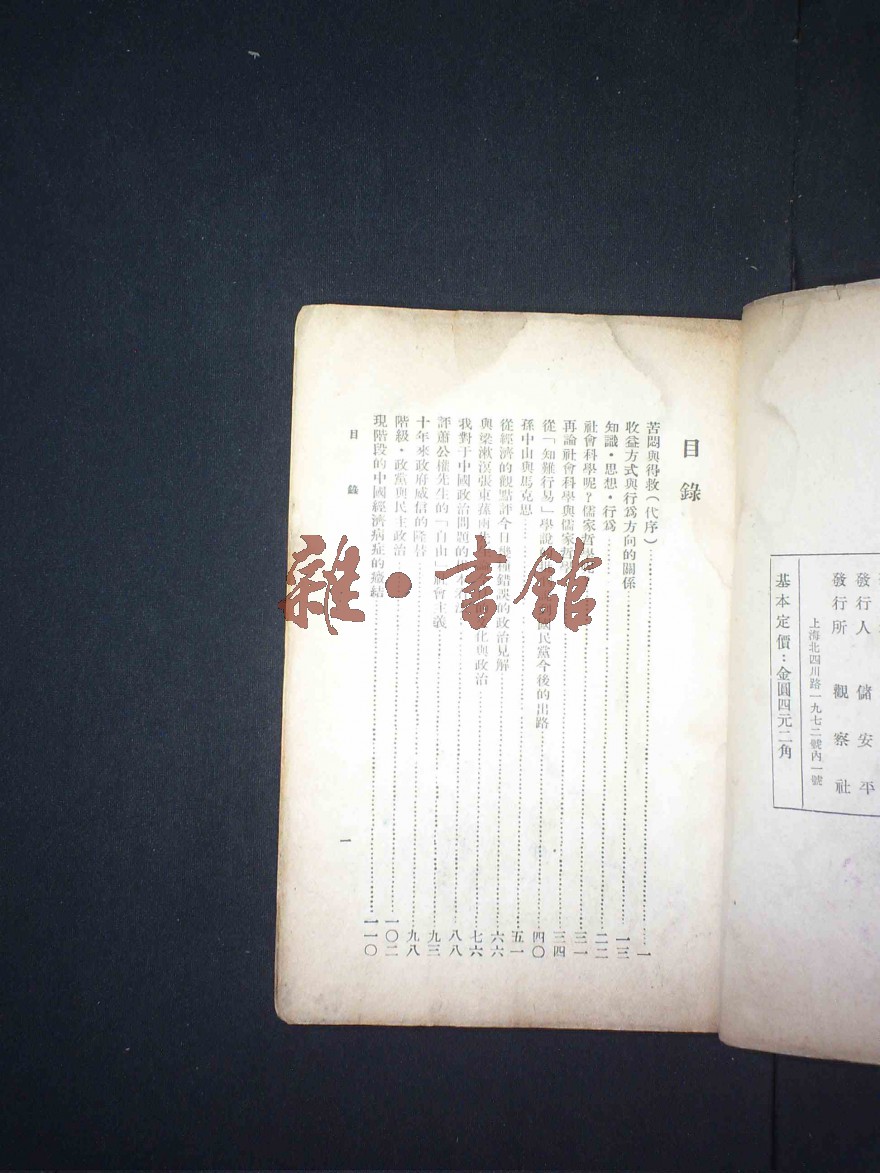 發行人 儲安平
發行所 觀察社
上海北四川路一九七二號內一號
基本定價：金圓四元二角
目錄
苦悶與得救（代序）…一
收益方式與行爲方向的關係…一三
知識・思想・行爲…二二
社會科學呢？儒家哲學…三一
再論社會科學與儒家哲學…三四
從「知難行易」學說 國民黨今後的出路…四〇
孫中山與馬克思…五一
從經濟的觀點評今日幾種錯誤的政治見解…六六
與梁漱溟張東蓀兩 化與政治…七六
我對于中國政治問題的…八八
評蕭公權先生的「自由 會主義…九三
十年來政府威信的隆替…九八
階級・政黨與民主政治…一〇二
現階段的中國經濟病症的癥結…一一〇
目錄
一
雜・書館